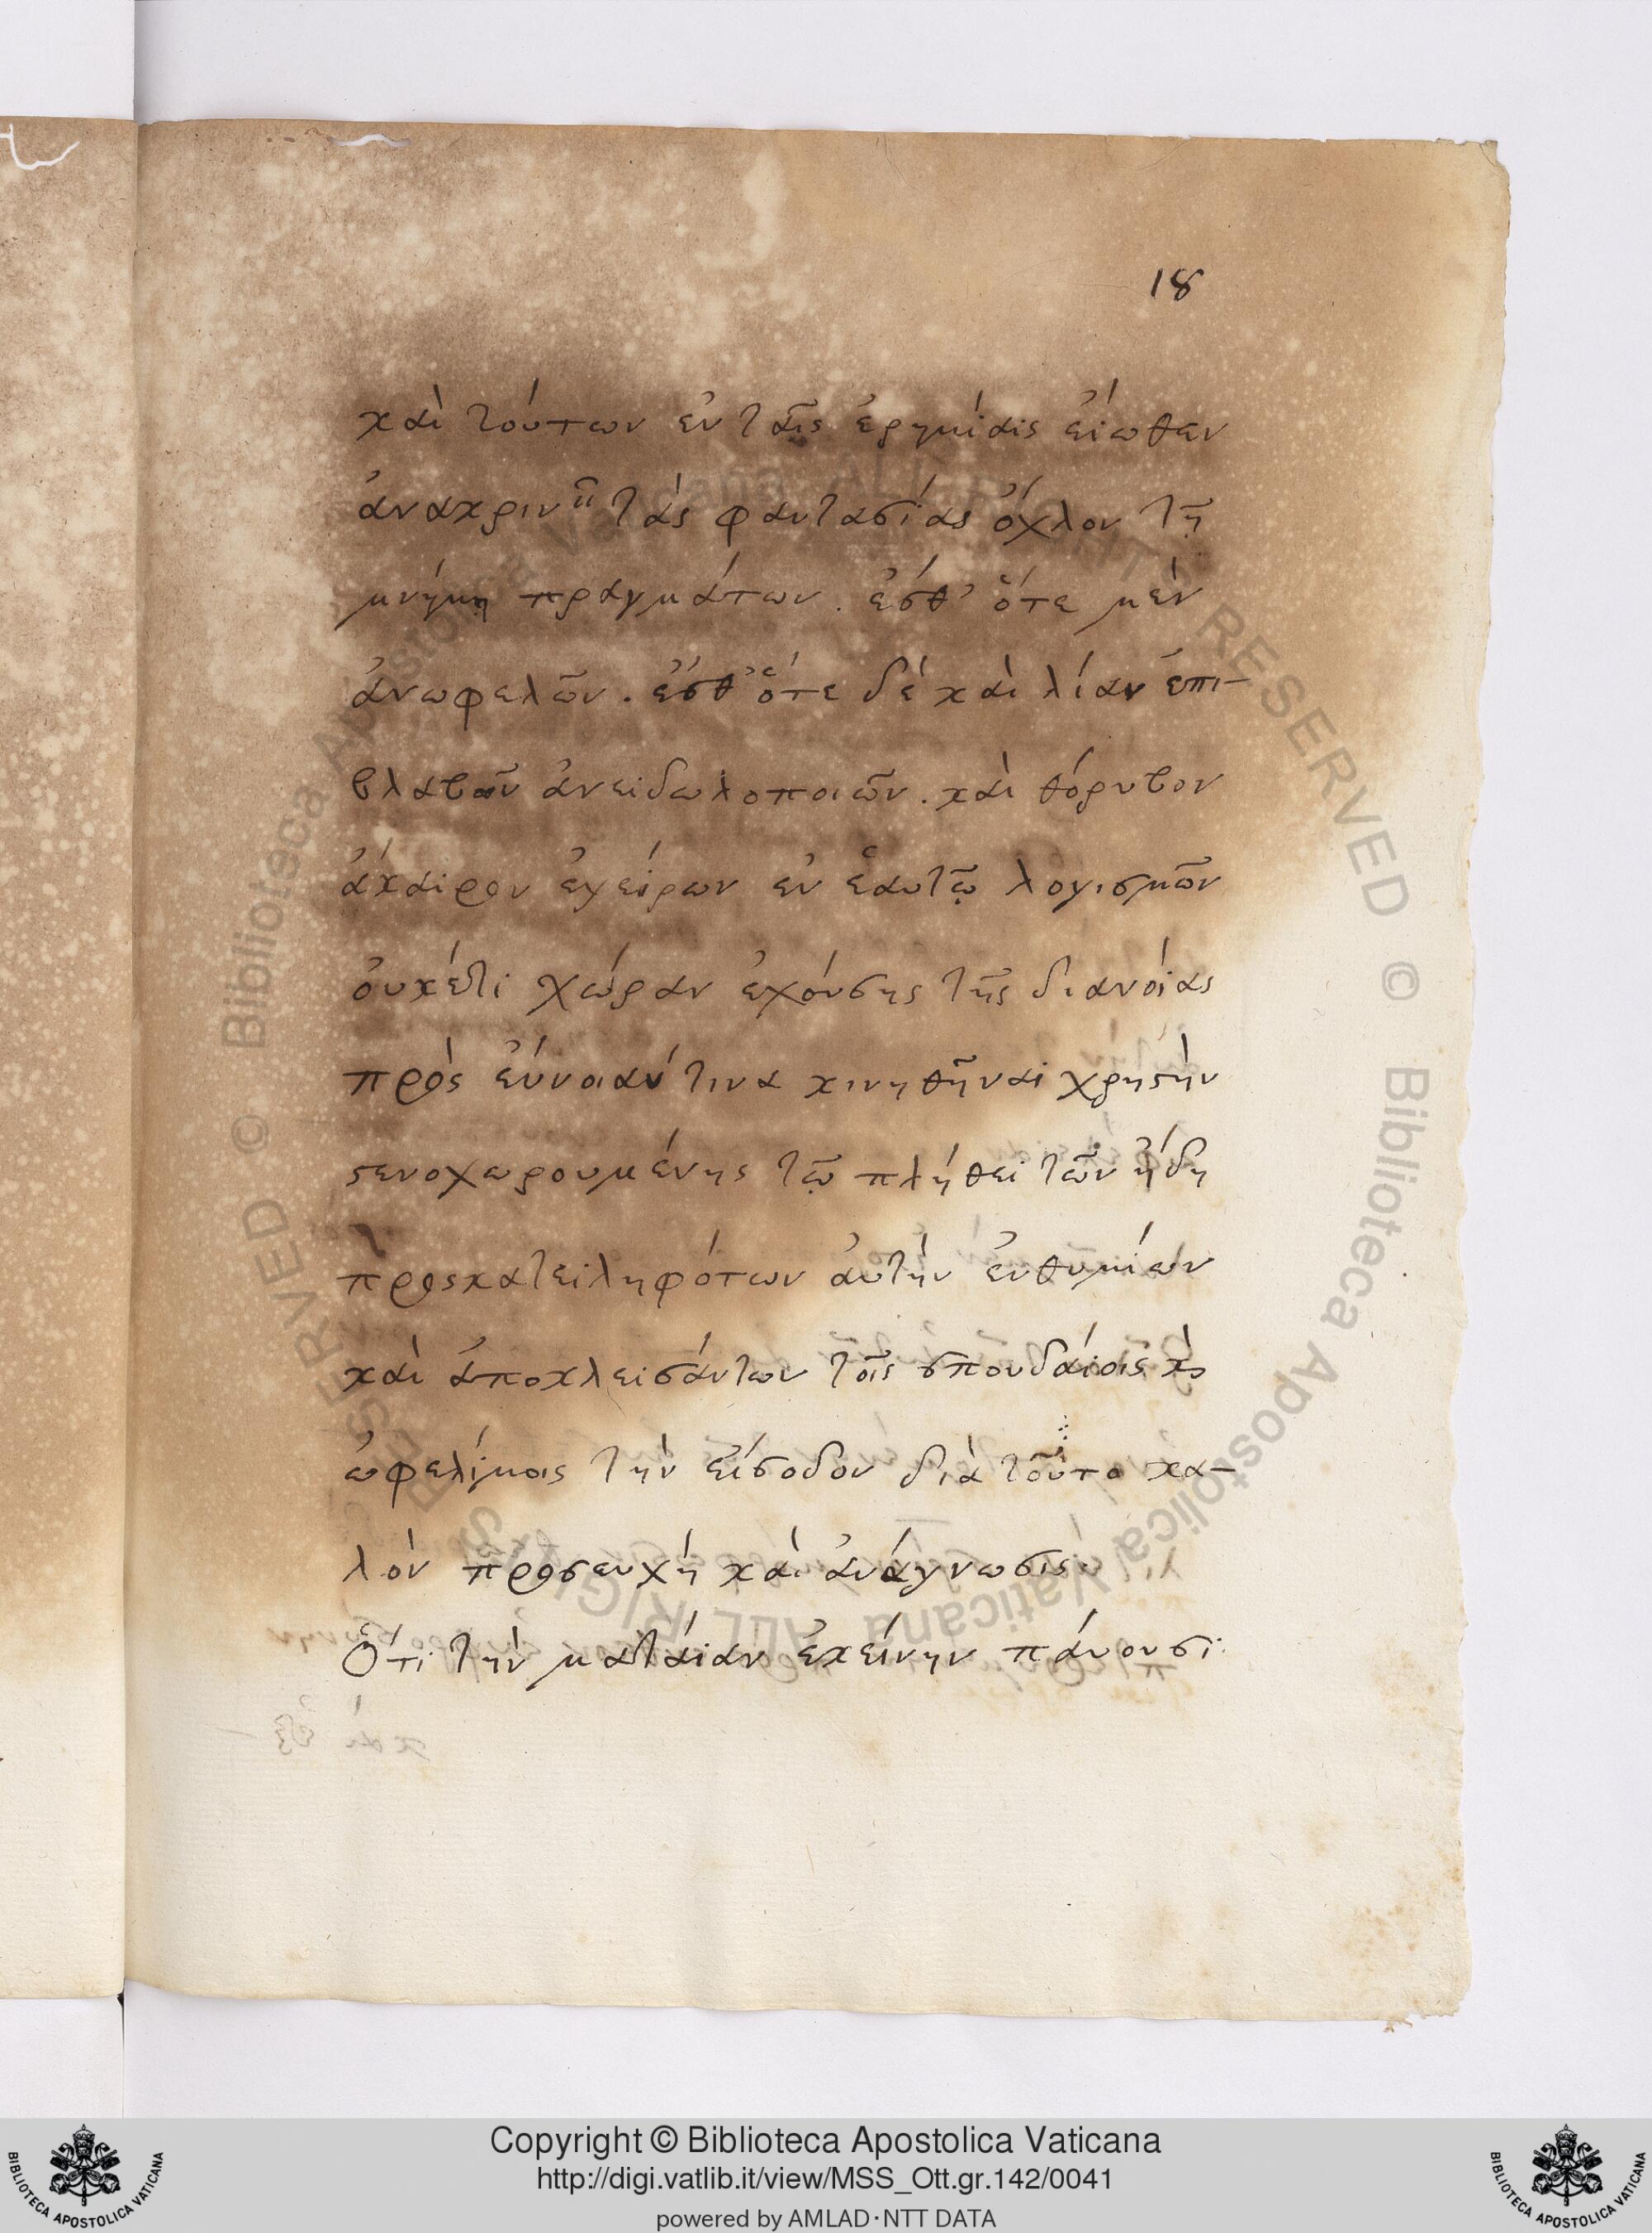 18
καὶ τούτων ἐν ταῖς ἐρημίαις εἴωθεν
ἀνακρινεῖν τὰς φαντασίας ὄχλον τῇ
μνήμῃ πραγμάτων. ἔσθ' ὅτε μὲν
ἀνωφελῶν. ἔσθ' ὅτε δὲ καὶ λίαν ἐπι-
βλαβῶν ἀνειδωλοποιῶν. καὶ θόρυβον
ἄκαιρον ἐγείρων ἐν ἑαυτῷ λογισμῶν
οὐκέτι χώραν ἐχούσης τῆς διανοίας
πρὸς εὔνοιαν τινα κινηθῆναι χρηστὴν
στενοχωρουμένης τῷ πλήθει τῶν ἤδη
προςκατειληφότων αὐτὴν ἐνθυμίων
καὶ ἀποκλεισάντων τοῖς σπουδαίοις κ
ὠφελίμοις τὴν εἴσοδον διὰ τοῦτο κα-
λὸν προσευχὴ καὶ ἀνάγνωσις
Ὅτι τὴν ματαίαν ἐκείνην παύουσι
© Biblioteca Apostolica Vaticana ALL RIGHT RESERVED
© Biblioteca Apostolica Vaticana ALL RIGHTS RESERVED
Copyright © Biblioteca Apostolica Vaticana
http://digi.vatlib.it/view/MSS_Ott.gr.142/0041
powered by AMLAD·NTT DATA
BIBLIOTECA APOSTOLICA VATICANA
BIBLIOTECA APOSTOLICA VATICANA